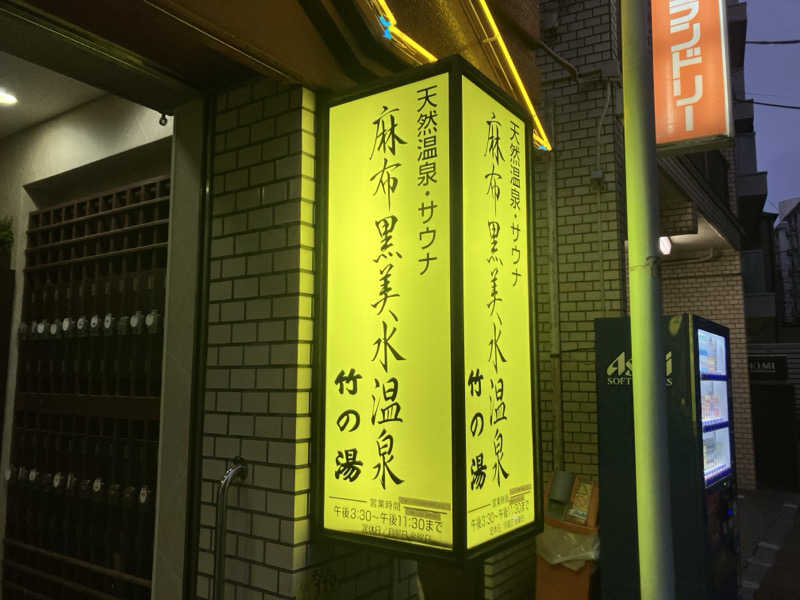 天然温泉・サウナ
麻布黒美水温泉
竹の湯
営業時間
午後3:30～午後11:30まで
天然温泉・サウナ
麻布黒美水温泉
竹の湯
営業時間
午後3:30～午後11:30まで
ランドリー
Asahi
SOFT DRINKS